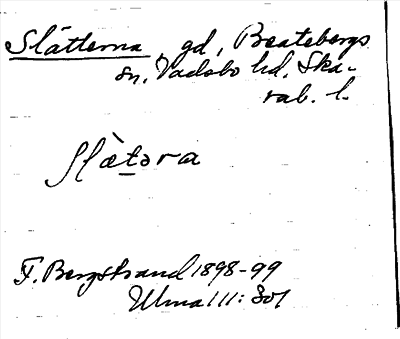 Slätterna, gd, Beatebergs
sn, Vadsbo hd, Ska-
rab. l.
Slætəra
F. Bergstrand 1898-99
Ulma 111:301